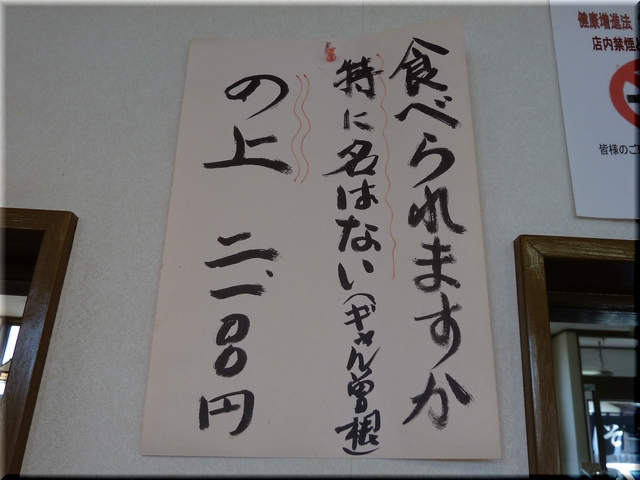 食べられますか
特に名はない(ギャル曽根)
の上 二、一〇〇円
健康増進法
店内禁煙
皆様のご
そ